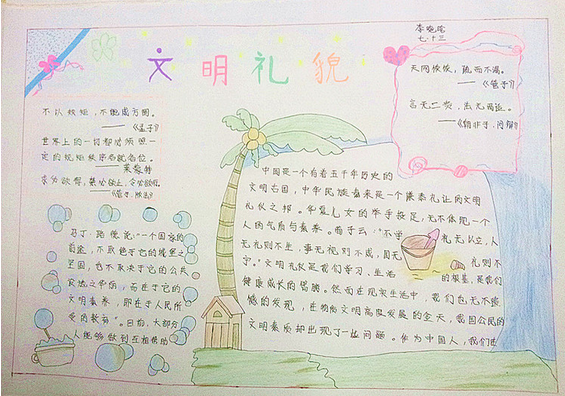 文明礼貌
七.十三
天网恢恢，疏而不漏。
言无二贵，法无两适。
不以规矩，不能成方圆。
——《孟子》
世界上的一切都必须按照一
定的规矩秩序各就各位。
——莱蒙特
马丁.路德说："一个国家的
前途，不取决于它的城堡之
坚固，也不取决于它的公共
设施之华丽，而在于它的
文明素养，即在于人民所
受的教育"。日前，大部分
人能够做到互相帮助
中国是一个有着五千年历史的
文明古国，中华民族素来是一个谦恭礼让的文明
礼仪之邦。华夏儿女的举手投足，无不体现一个
人的气质与素养。荀子云："不学礼无以立，人
无礼则不生，事无礼则不成，国无礼则不
宁。"文明礼仪是我们学习、生活的根基，是我们
健康成长的臂膀。然而在现实生活中，我们也无不遗
憾的发现，在物质文明高度发展的今天，我国公民的
文明素质却出现了一些问题。作为中国人，我们进